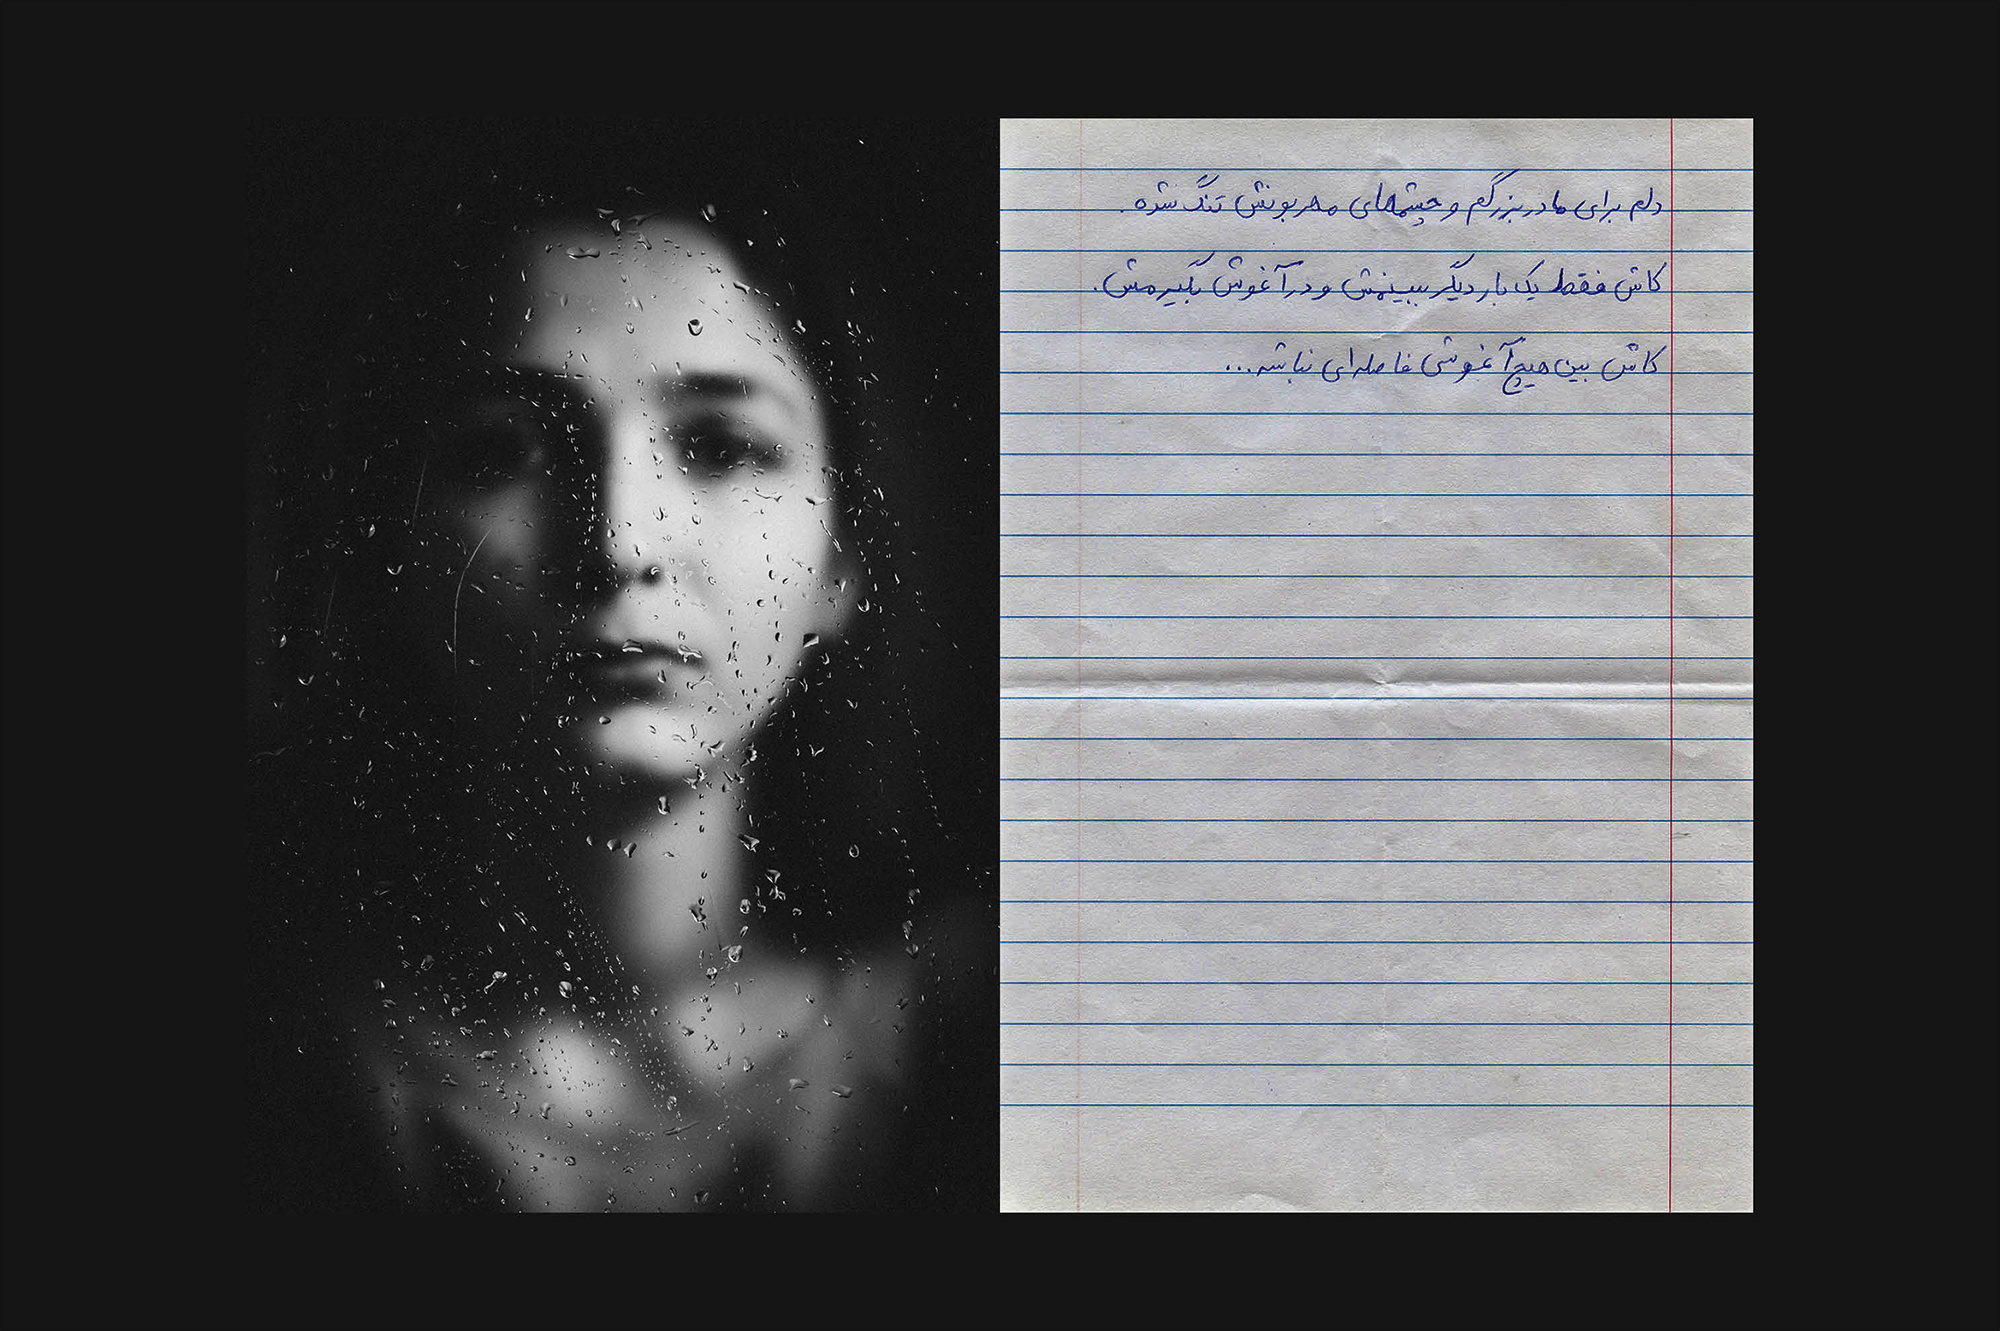 دلم برای مادربزرگم و چشمهای مهربونش تنگ شده.
کاش فقط یک بار دیگر ببینمش و در آغوش بگیرمش.
کاش بین هیچ آغوشی فاصله‌ای نباشه...